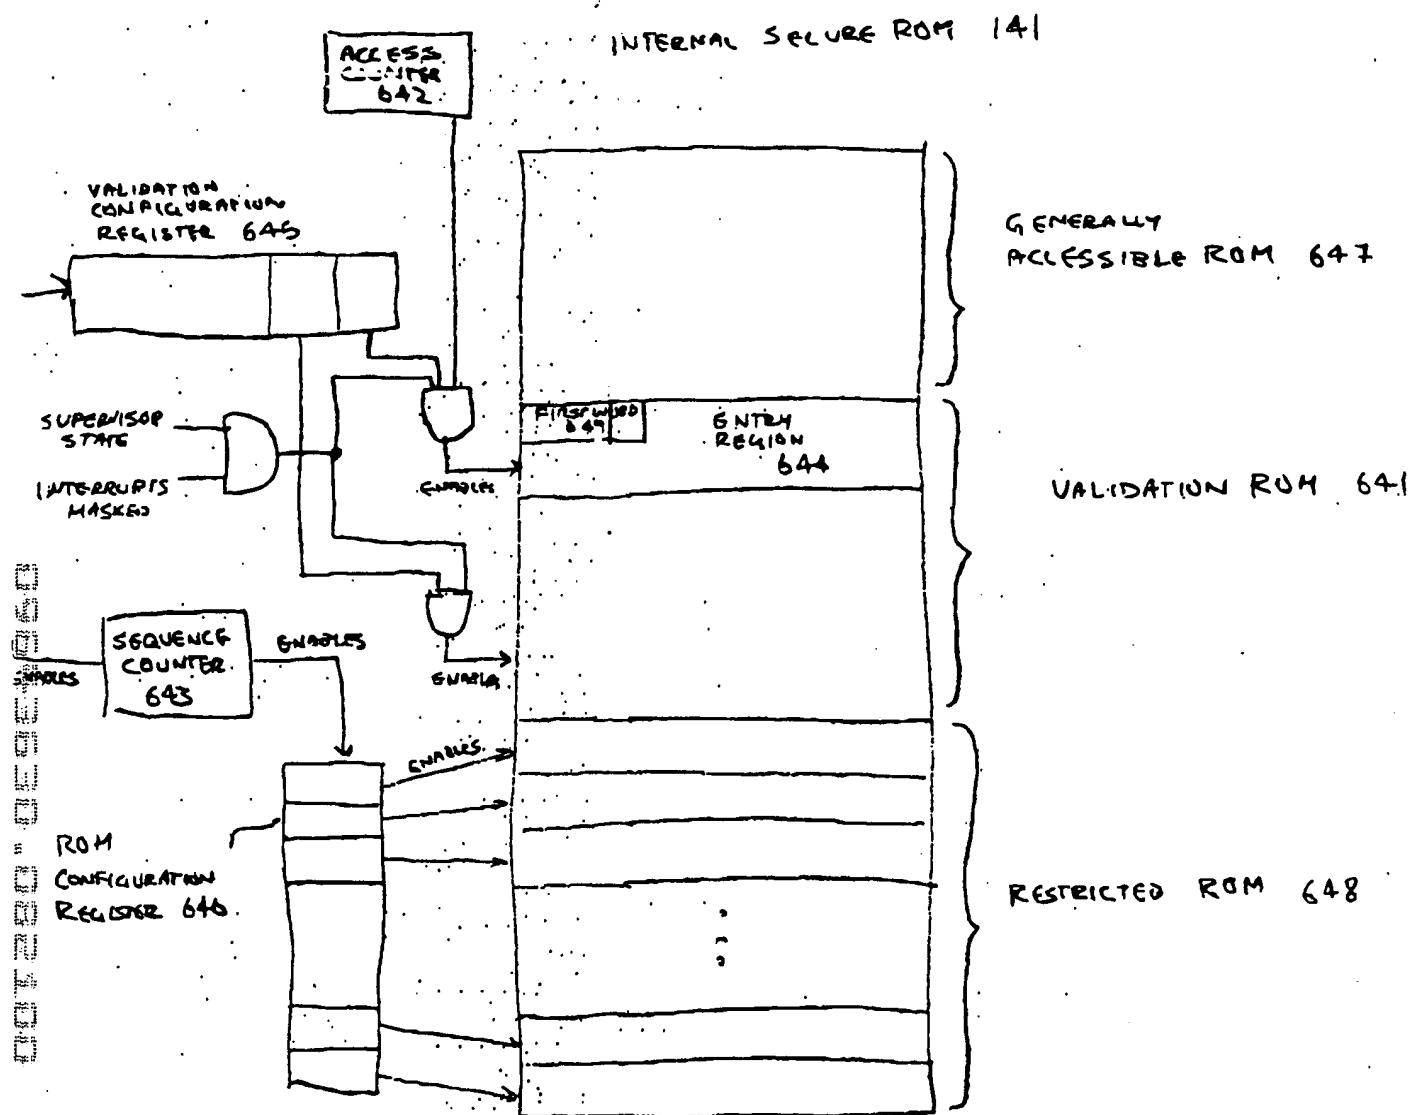 INTERNAL SECURE ROM 141
ACCESS
COUNTER
642
VALIDATION
CONFIGURATION
REGISTER 645
GENERALLY
ACCESSIBLE ROM 647
SUPERVISOR
STATE
INTERRUPTS
MASKED
ENABLES
FIRST WORD
649
ENTRY
REGION
644
VALIDATION ROM 641
SEQUENCE
COUNTER
643
ENABLES
ENABLES
ENABLES
ENABLES
ROM
CONFIGURATION
REGISTER 646
RESTRICTED ROM 648